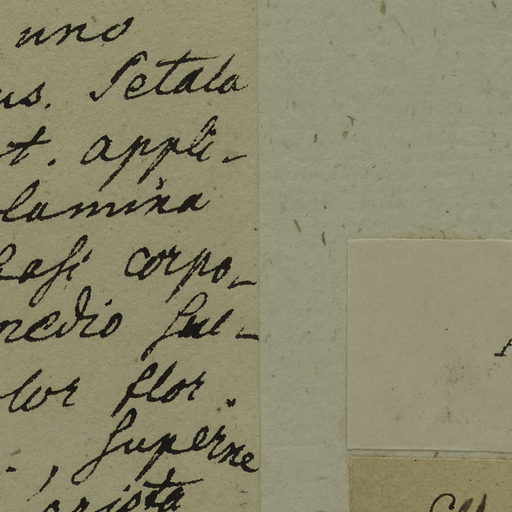 uno
us. Petala
t. appli-
lamina
basi corpo-
medio sul-
lor flor.
., superne
arista